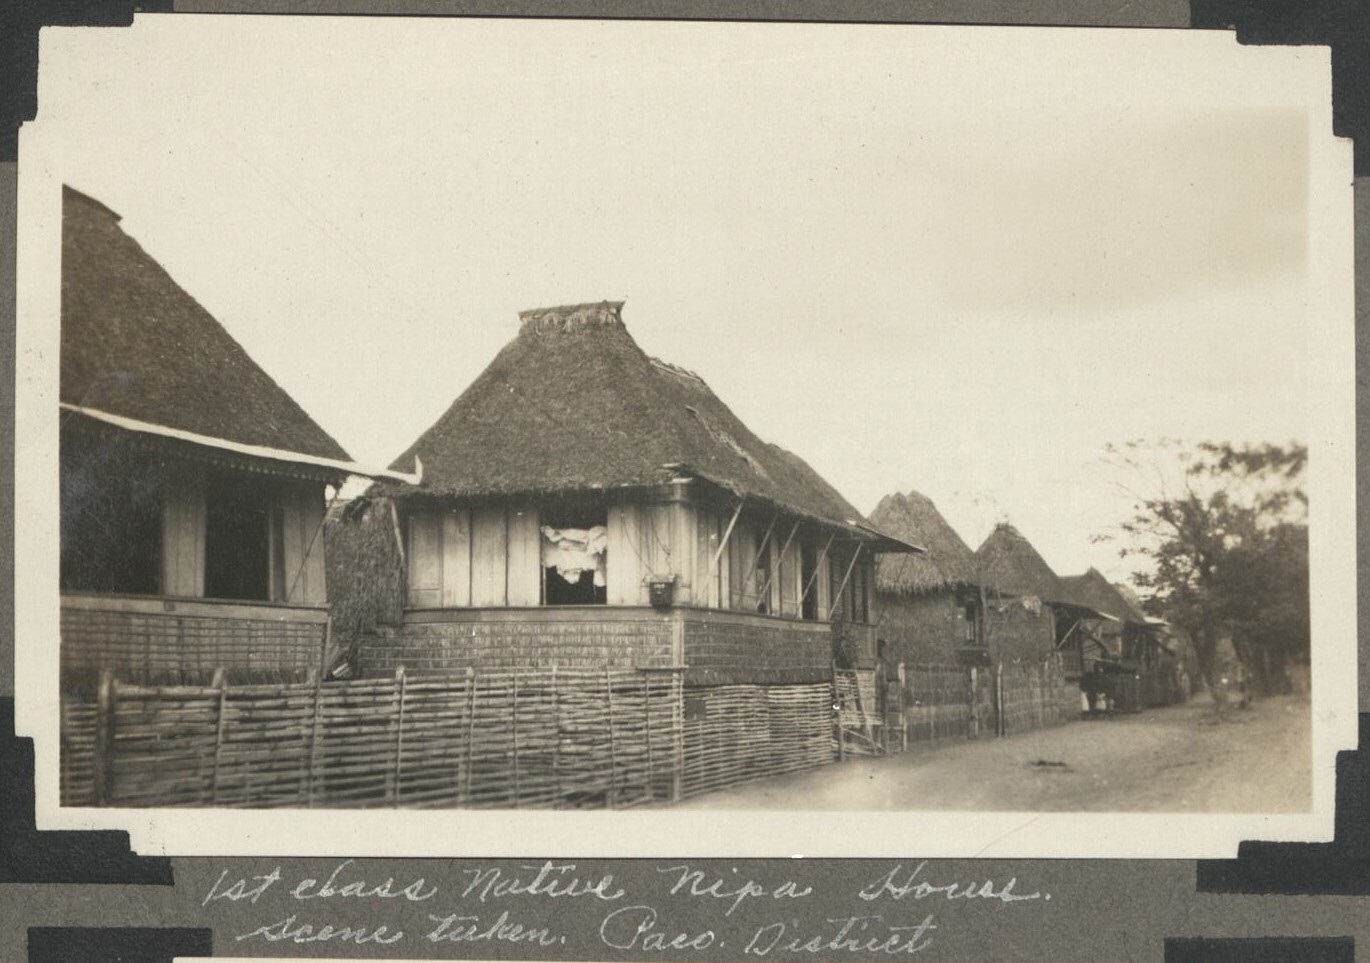 1st class Native Nipa House.
scene taken. Paco. District